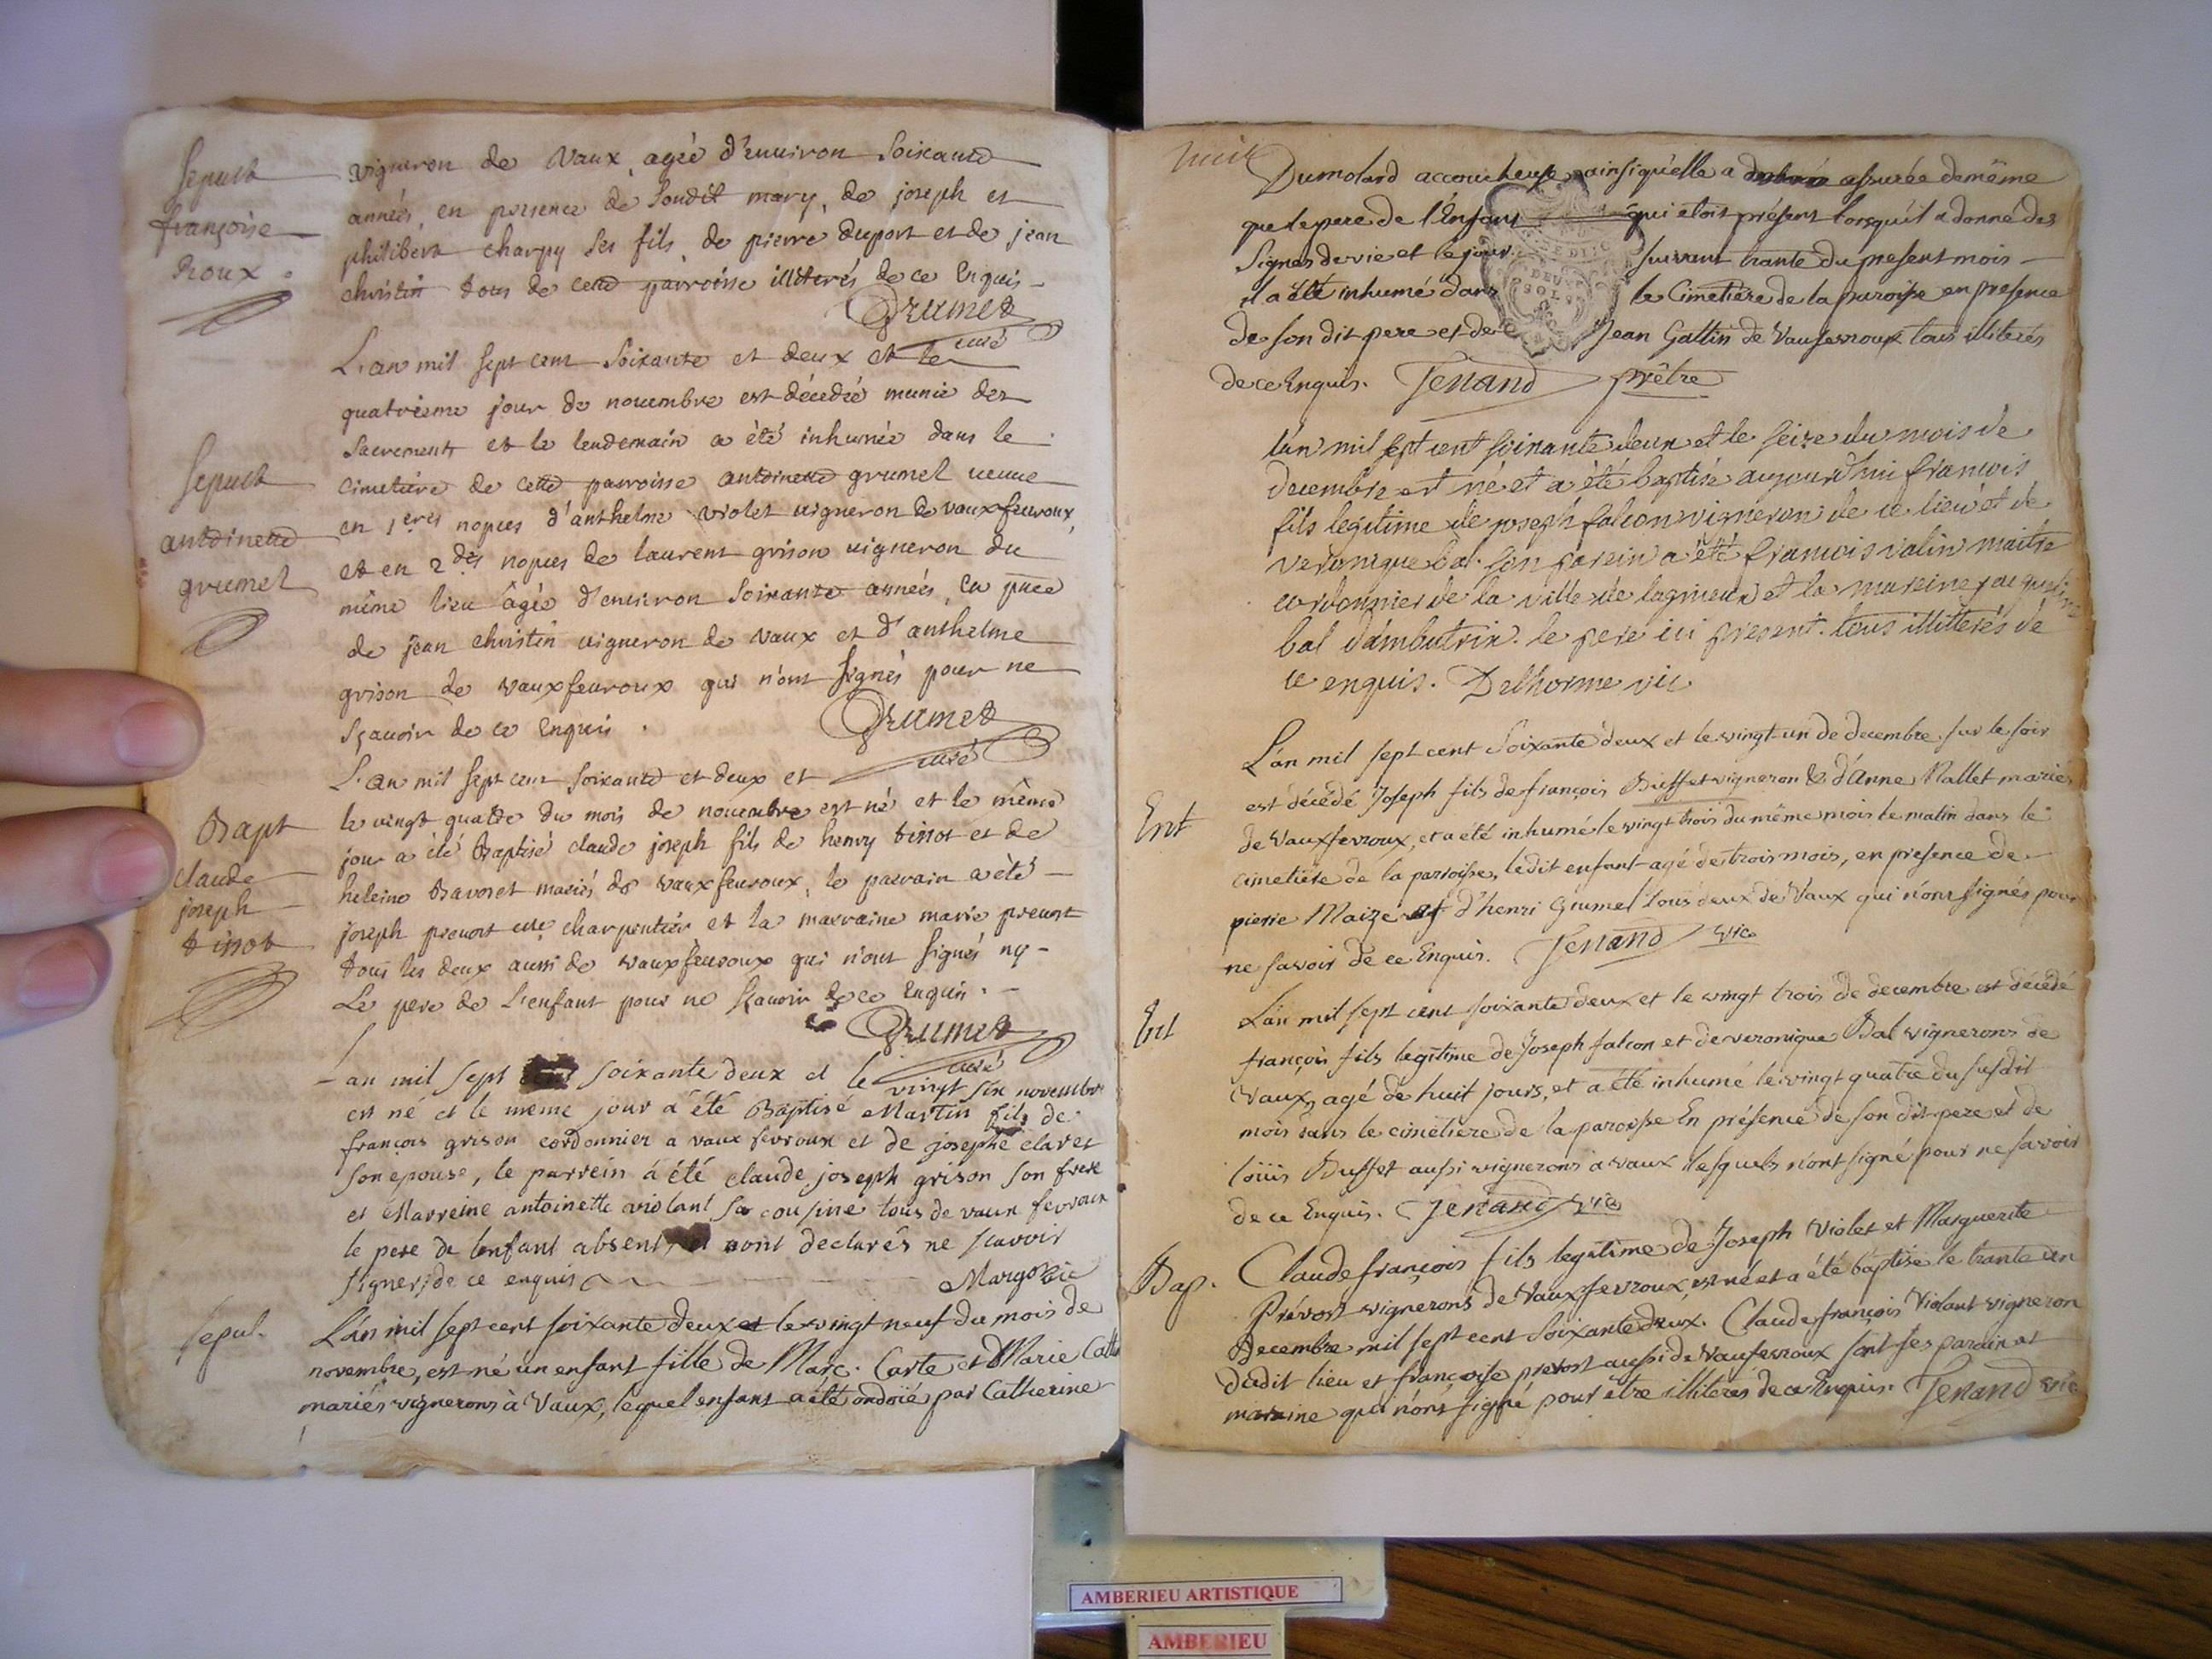 Sepult
françoise
Roux .
vigneron de Vaux, agée d'environ Soixante
années, en présence de Soudit mary, de joseph et
philibert charpy Ses fils, de pierre dupont et de jean
christin tous de cette parroisse illiterés de ce Enquis -
Grumet
curé
L'an mil Sept cent Soixante et deux et le
quatrieme jour de novembre est décédée munie des
Sacrements et le lendemain a été inhumée dans le
Sepult
antoinette
grumet
cimetiere de cette parroisse antoinette grumet veuve
en 1eres nopces d'anthelme violet vigneron de vauxfevroux,
et en 2des nopces de laurent grison vigneron du
même lieu âgée d'environ Soixante années, en pnce
de jean christin vigneron de Vaux et d'anthelme
grison de vauxfevroux qui n'ont Signés pour ne
Sçavoir de ce Enquis .
Grumet
curé
L'an mil Sept cent Soixante et deux et
Bapt
claude
joseph
tissot
le vingt quatre du mois de novembre est né et le même
jour a été Baptisé claude joseph fils de henry tissot et de
heleine Bavoret mariés de vauxfevroux, le parrain a été
joseph prevost charpentier et la marraine marie prevost
tous les deux aussi de vauxfevroux qui n'ont Signés ny -
Le pere de L'enfant pour ne Sçavoir de ce Enquis . -
Grumet
curé
L'an mil sept soixante deux et le vingt six novembre
est né et le meme jour a été Baptisé Martin fils de
françois grison cordonnier a vaux fevroux et de josephe claret
son epouse, le parrein a été claude joseph grison son frere
et Marreine antoinette violant sa cousine tous de vaux fevroux
le pere de lenfant absent, et nont declarés ne scavoir
signer, de ce enquis
Margot vic
sepul.
L'an mil sept cent soixante deux et le vingt neuf du mois de
novembre, est né un enfant fille de Marc. Carte et Marie
mariés vignerons à Vaux, lequel enfant a été ondoié par Catherine
huit
Dumolard accoucheuse ainsi qu'elle a assurée de même
que le pere de l'Enfant qui etoit présent lorsqu'il a donné des
Signes de vie et le jour suivant trante du present mois -
il a été inhumé dans le Cimetière de la paroisse en presence
de son dit pere et de Jean Gallin de Vaufevroux tous illiterés
de ce Enquis. Tenand prêtre
DEUX
SOLS
lan mil sept cent soixante deux et le seize du mois de
decembre est né et a été baptisé aujourd'hui francois
fils legitime de joseph falcon vigneron de ce lieu et de
veronique bal. son parein a été francois valin maitre
cordonnier de la ville de lagnieux et la mareine jaqueline
bal d'ambutrix. le pere ici present. tous illitterés de
ce enquis. Delhorme vic
L'an mil sept cent soixante deux et le vingt un de decembre sur le soir
Ent
est décédé Joseph fils de françois Buffet vigneron & d'Anne Nallet mariés
de Vauxfevroux, et a été inhumé le vingt trois du même mois le matin dans le
cimetière de la paroisse, ledit enfant agé de trois mois, en presence de
pierre Maizé et d'henri Grumel tous deux de Vaux qui n'ont signés pour
ne savoir de ce Enquis. Tenand vic
Ent
L'an mil sept cent soixante deux et le vingt trois de decembre est décédé
françois fils legitime de Joseph falcon et de veronique Bal vignerons de
Vaux, agé de huit jours, et a été inhumé le vingt quatre du susdit
mois dans le cimetiere de la paroisse En présence de son dit pere et de
loüis Buffet aussi vignerons a vaux lesquels n'ont signé pour ne savoir
de ce Enquis. Tenand vic
Bap.
Claude françois fils legitime de Joseph Violet et Marguerite
Prévost vignerons de Vauxfevroux, est né et a été baptisé le trante un
Decembre mil sept cent Soixante deux. Claude françois Violant vigneron
dudit lieu et françoise prevost aussi de Vaufevroux sont ses parain et
maraine qui n'ont signé pour être illiteres de ce Enquis. Tenand vic
AMBERIEU ARTISTIQUE
AMBERIEU